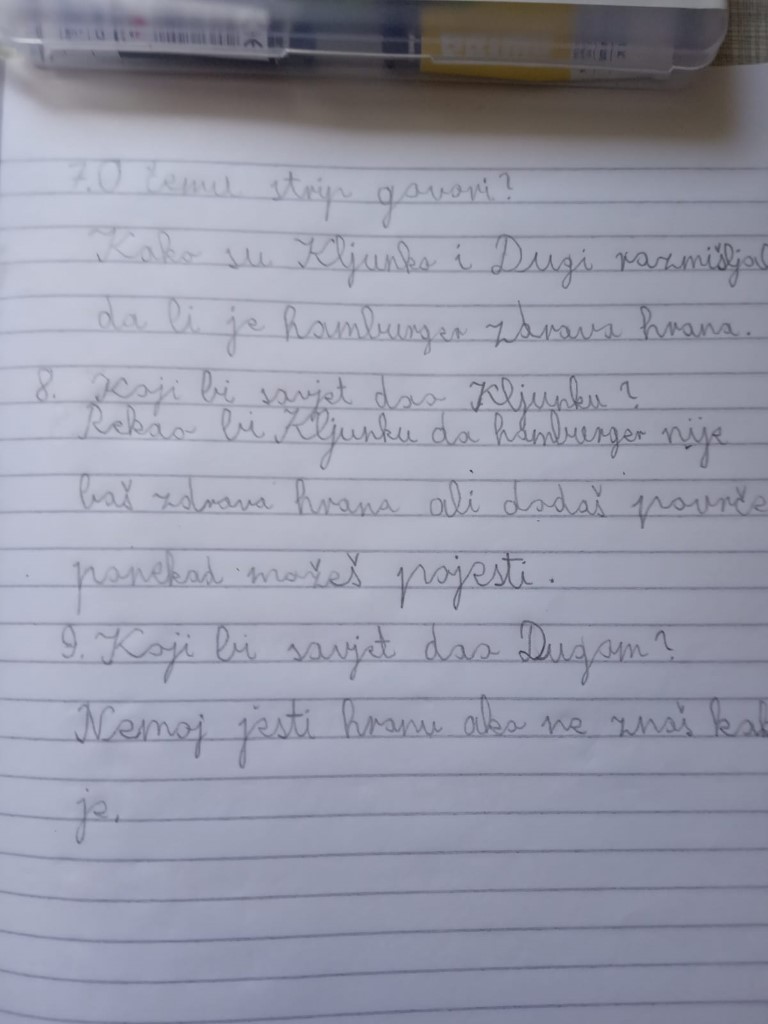 7. O čemu strip govori?
Kako su Kljunko i Dugi razmišljal
da li je hamburger zdrava hrana.
8. Koji bi savjet dao Kljunku?
Rekao bi Kljunku da hamburger nije
baš zdrava hrana ali dodaš povrče
ponekad možeš pojesti.
9. Koji bi savjet dao Dugom?
Nemoj jesti hranu ako ne znaš kak
je.